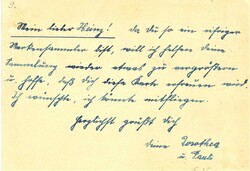 9.
Mein lieber Heinz! Da du so ein eifriger
Markensammler bist, will ich helfen deine
Sammlung wieder etwas zu vergrößern
u. hoffe, daß dich diese Karte erfreuen wird.
Ich wünschte, ich könnte mitfliegen.
Herzlichst grüßt dich
deine Dorothea
u. Paul